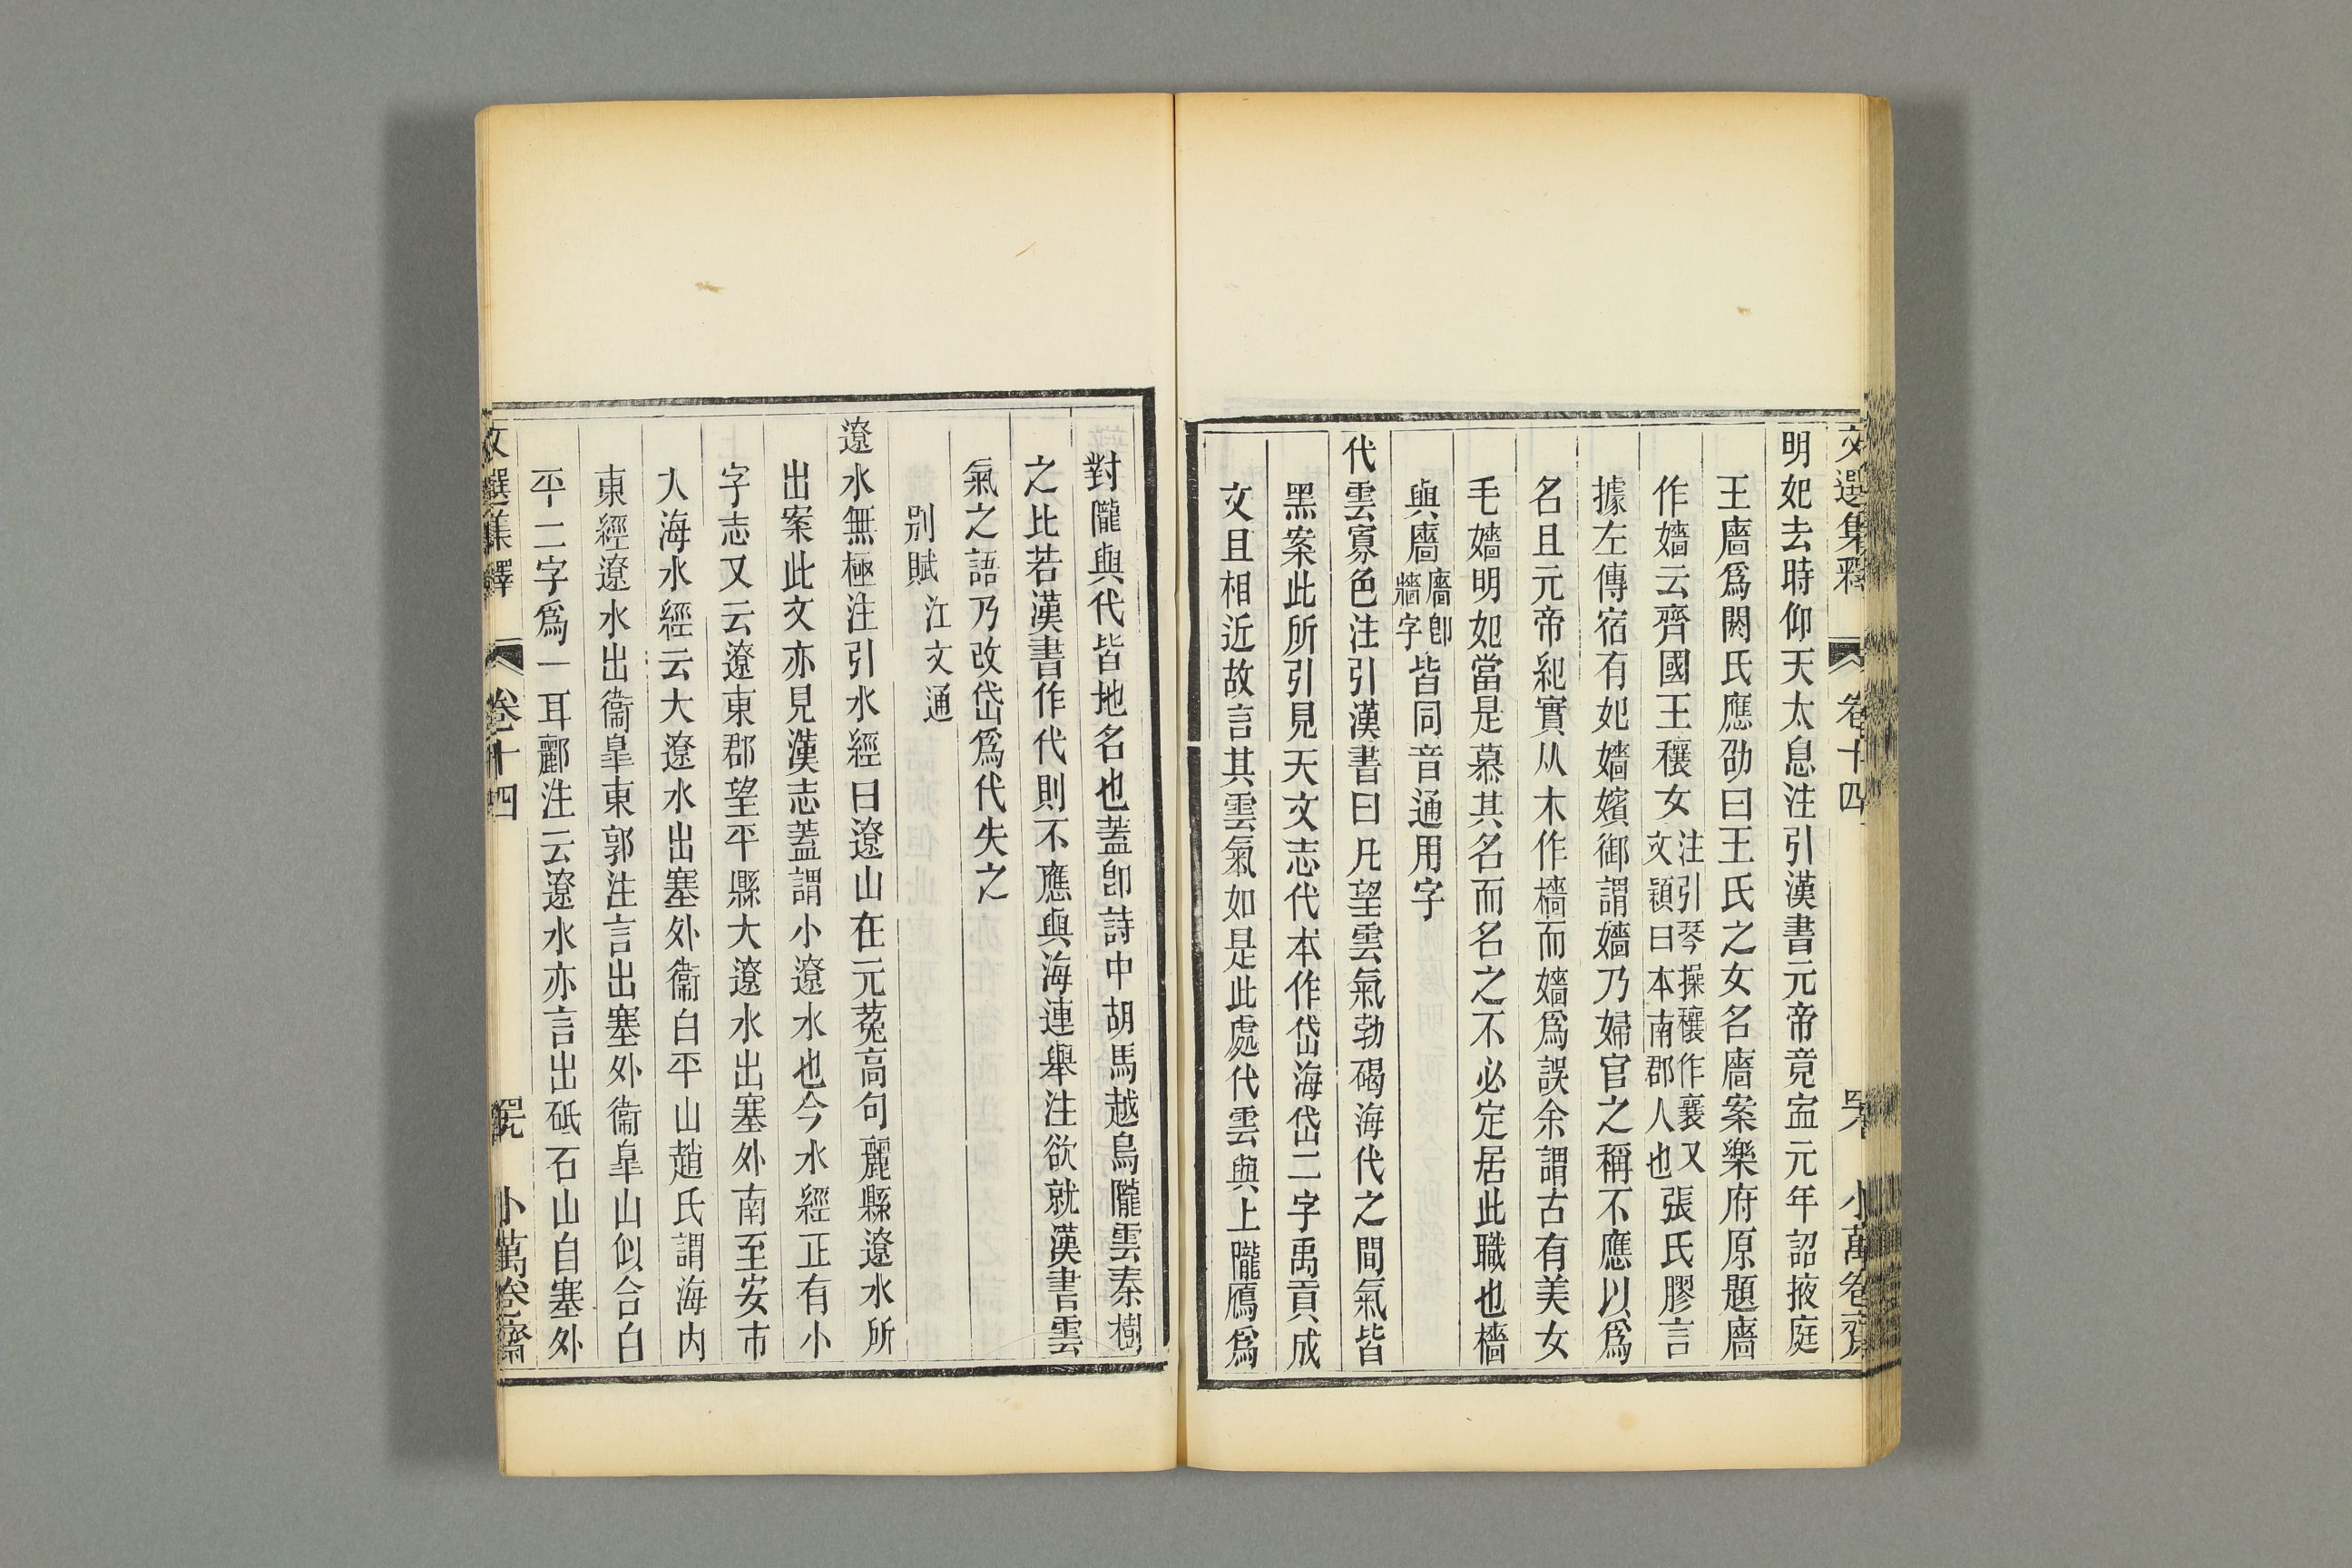 文選集釋 卷十四 小萬卷齋
明妃去時仰天太息注引漢書元帝竟寍元年詔掖庭
王廧爲閼氏應劭曰王氏之女名廧案樂府原題廧
作嬙云齊國王穰女注引琴操穰作襄又文穎曰本南郡人也張氏膠言
據左傳宿有妃嬙嬪御謂嬙乃婦官之稱不應以爲
名且元帝紀實从木作檣而嬙爲誤余謂古有美女
毛嬙明妃當是慕其名而名之不必定居此職也檣
與廧廧卽牆字皆同音通用字
代雲寡色注引漢書曰凡望雲氣勃碣海代之間氣皆
黑案此所引見天文志代本作岱海岱二字禹貢成
文且相近故言其雲氣如是此處代雲與上隴鴈爲
對隴與代皆地名也蓋卽詩中胡馬越鳥隴雲秦樹
之比若漢書作代則不應與海連舉注欲就漢書雲
氣之語乃改岱爲代失之
別賦 江文通
遼水無極注引水經曰遼山在元菟高句麗縣遼水所
出案此文亦見漢志蓋謂小遼水也今水經正有小
字志又云遼東郡望平縣大遼水出塞外南至安市
入海水經云大遼水出塞外衞白平山趙氏謂海內
東經遼水出衞皐東郭注言出塞外衞皐山似合白
平二字爲一耳酈注云遼水亦言出砥石山自塞外
文選集釋 卷十四 小萬卷齋